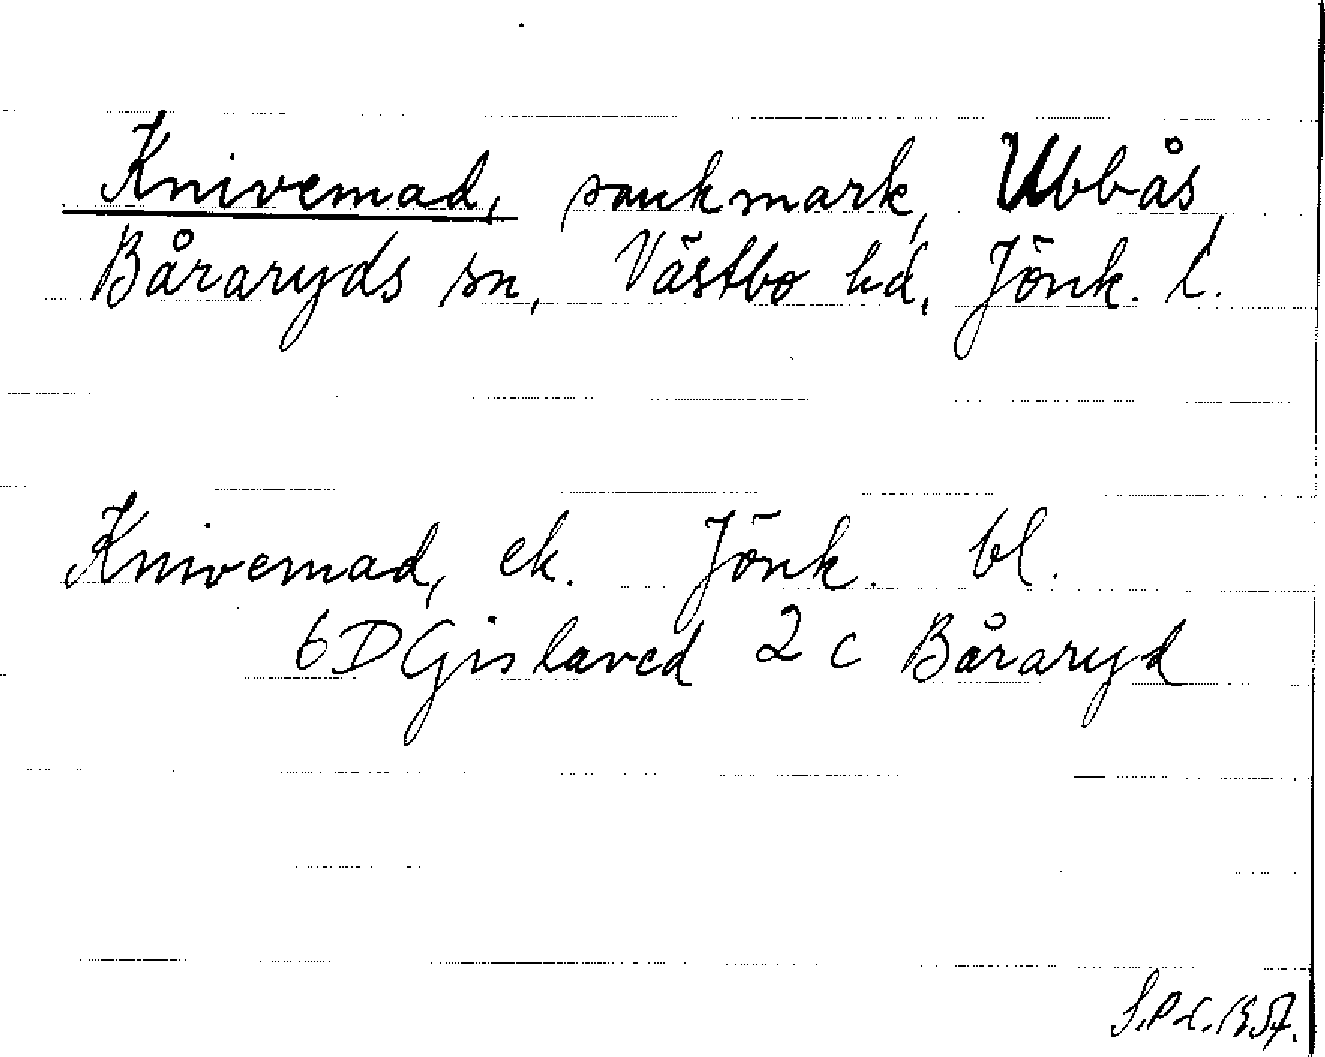 Knivemad, sankmark, Ubbås,
Båraryds sn, Västbo hd, Jönk. l.
Knivemad, ek. Jönk. bl.
6D Gislaved 2 c Båraryd
1957.